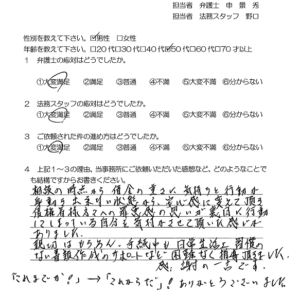 担当者 弁護士 申 景秀
担当者 法務スタッフ 野口
性別を教えて下さい。 ☑男性 □女性
年齢を教えて下さい。 □20代□30代□40代☑50代□60代□70才以上
1 弁護士の応対はどうでしたか。
①大変満足 ②満足 ③普通 ④不満 ⑤大変不満 ⑥分からない
2 法務スタッフの応対はどうでしたか。
①大変満足 ②満足 ③普通 ④不満 ⑤大変不満 ⑥分からない
3 ご依頼された件の進め方はどうでしたか。
①大変満足 ②満足 ③普通 ④不満 ⑤大変不満 ⑥分からない
4 上記1~3の理由、当事務所にご依頼いただいた感想など、どのようなことで
も結構ですからお書きください。
相談の時点から借金の重さに気持ちと行動が
出来ない状態から、安心感に変えて頂き
債権者様方々への罪悪感の思いが
しまっている自分を気付かせて頂いた感じが
ありました。
親切はもちろん、手続きも日常生活と習慣の
ない書類作成のサポートなど困難なく指導頂きました。
感謝の一言です。
「これまでか?」→「これからだ」! ありがとうございました